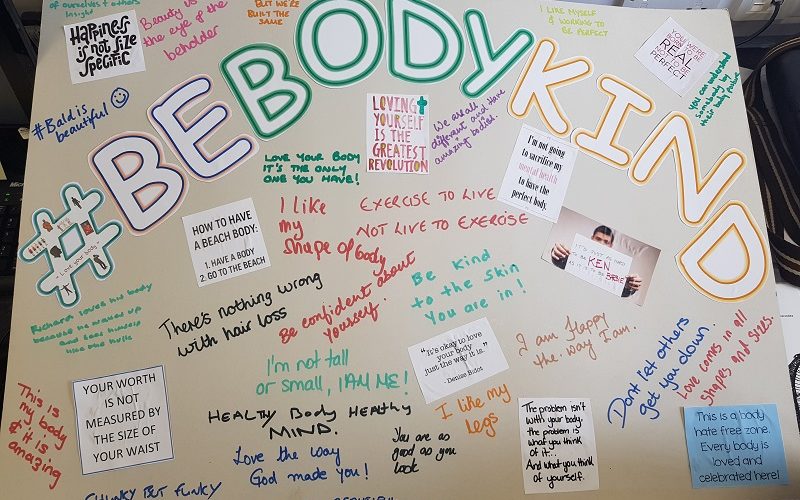 of ourselves + others
Insight
HAPPINESS
IS NOT SIZE
SPECIFIC
Beauty is in
the eye of the
beholder
BUT WE'RE
BUILT THE
SAME
I LIKE MYSELF
& WORKING TO
BE PERFECT
YOU WERE
BORN TO BE
REAL
NOT TO BE
PERFECT
You can understand
somebody by
their body
#BEBODYKIND
#Bald is
beautiful
LOVING
YOURSELF
IS THE
GREATEST
REVOLUTION
We are all
different and have
amazing bodies.
I'm not going
to sacrifice my
mental health
to have the
perfect body.
LOVE YOUR BODY
IT'S THE ONLY
ONE YOU HAVE!
Love your body
HOW TO HAVE
A BEACH BODY:
1. HAVE A BODY
2. GO TO THE BEACH
I like
my
shape of body
EXERCISE TO LIVE
NOT LIVE TO EXERCISE
KEN
BARBIE
Richard loves his body
because he waxed up
and sees himself
like the hulk
There's nothing wrong
with hair loss
Be confident about
yourself.
Be kind
to the skin
you are in!
I'm not tall
or small, I AM ME!
"It's okay to love
your body
just the way it is."
- Denise Bidot
I am Happy
the way I am.
Dont let others
get you down.
Love comes in all
shapes and sizes.
This is
my body
& it is
amazing
YOUR WORTH
IS NOT
MEASURED BY
THE SIZE OF
YOUR WAIST
HEALTHY BODY HEALTHY
MIND.
I like my
legs
Love the way
God made you!
You are as
good as you
look
The problem isn't
with your body.
the problem is
what you think
of it...
And what you think
of yourself.
This is a body
hate free zone.
Every body is
loved and
celebrated here!
CHUNKY BUT FUNKY
BEAUTIFUL